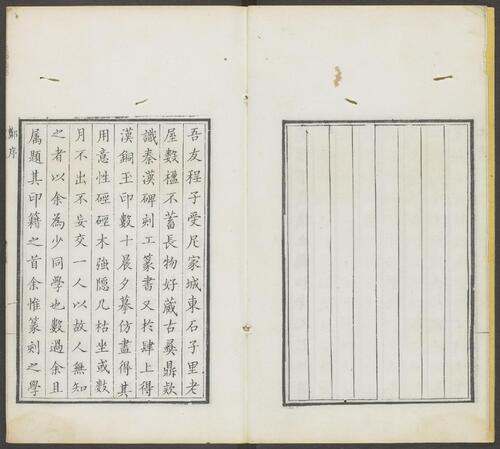 吾友程子受尼家城東石子里老
屋數楹不蓄長物好蔵古彝鼎欵
識秦漢碑刻工篆書又於肆上得
漢銅玉印數十晨夕摹仿盡得其
用意性硜硜木強隠几枯坐或數
月不出不妄交一人以故人無知
之者以余為少同學也數過余且
属題其印籍之首余惟篆刻之學
鄭序
一